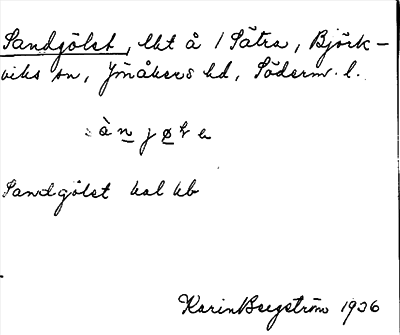 Sandgölet, lkt å 1 Sätra, Björk-
viks sn, Jönåkers hd, Söderm. l.
Sandgölet kal kb
Karin Bergström 1936